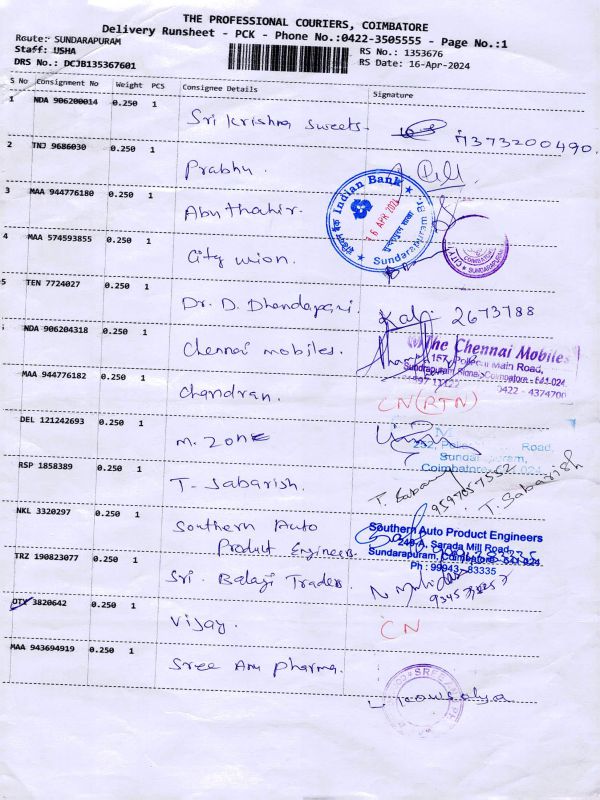 THE PROFESSIONAL COURIERS, COIMBATORE
Delivery Runsheet - PCK - Phone No.:0422-3505555 - Page No.:1
Route: SUNDARAPURAM
Staff: USHA RS No.: 1353676
DRS No.: DCJB135367601 RS Date: 16-Apr-2024
S No Consignment No Weight PCS Consignee Details Signature
1 NDA 906200014 0.250 1 Sri Krishna sweets. 7373200490.
2 TNJ 9686030 0.250 1 Prabhu.
3 MAA 944776180 0.250 1 Abuthahir. Indian Bank
16 APR 2024
Sundarapuram
4 MAA 574593855 0.250 1 City union. CITY
COIMBATORE
SUNDARAPURAM
5 TEN 7724027 0.250 1 Dr. D. Dhandapani. 2673788
NDA 906204318 0.250 1 Chennai mobiles. The Chennai Mobiles
157, Pollachi Main Road,
Sundrapuram Signal, Coimbatore - 641 024.
0422 - 4374700
MAA 944776182 0.250 1 Chandran. CN (RTN)
DEL 121242693 0.250 1 M. Zone Road,
Sundarapuram,
Coimbatore
RSP 1858389 0.250 1 T. Sabarish. T. Sabarish
9597057552
NKL 3320297 0.250 1 Southern Auto
Product Engineers. Southern Auto Product Engineers
249-A, Sarada Mill Road,
Sundarapuram, Coimbatore - 641 024.
Ph : 99943 - 83335
TRZ 190823077 0.250 1 Sri Balaji Traders.
OTY 3820642 0.250 1 Vijay. CN
MAA 943694919 0.250 1 Sree Anu pharma. SREE
kowsalya